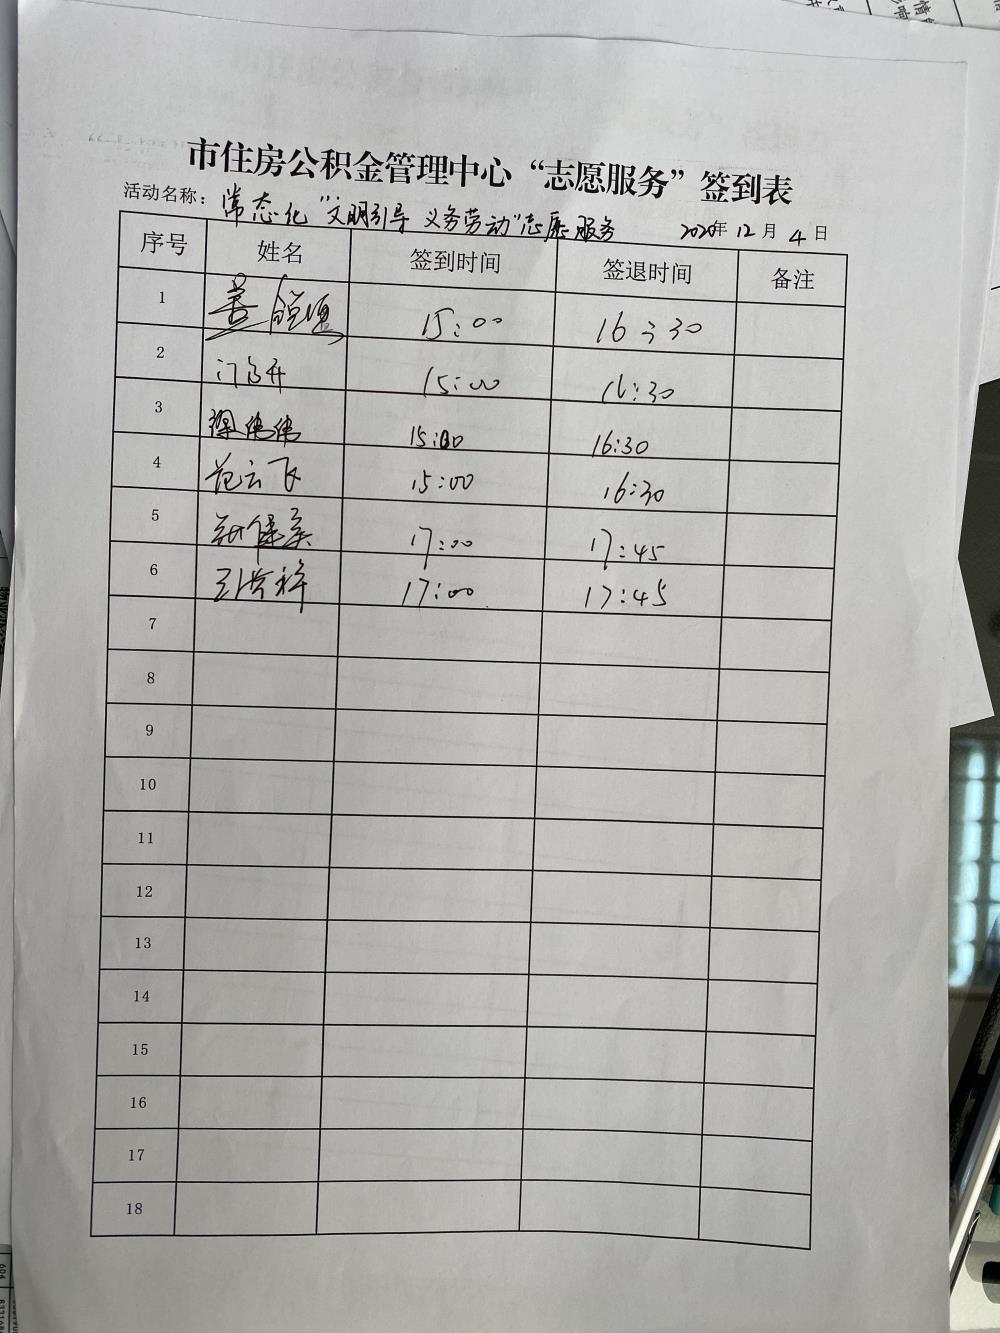 市住房公积金管理中心“志愿服务”签到表
活动名称：常态化“文明引导 义务劳动”志愿服务 2020年12月4日
序号 姓名 签到时间 签退时间 备注
1 15:00 16:30
2 15:00 16:30
3 15:00 16:30
4 范云飞 15:00 16:30
5 17:00 17:45
6 17:00 17:45
7
8
9
10
11
12
13
14
15
16
17
18